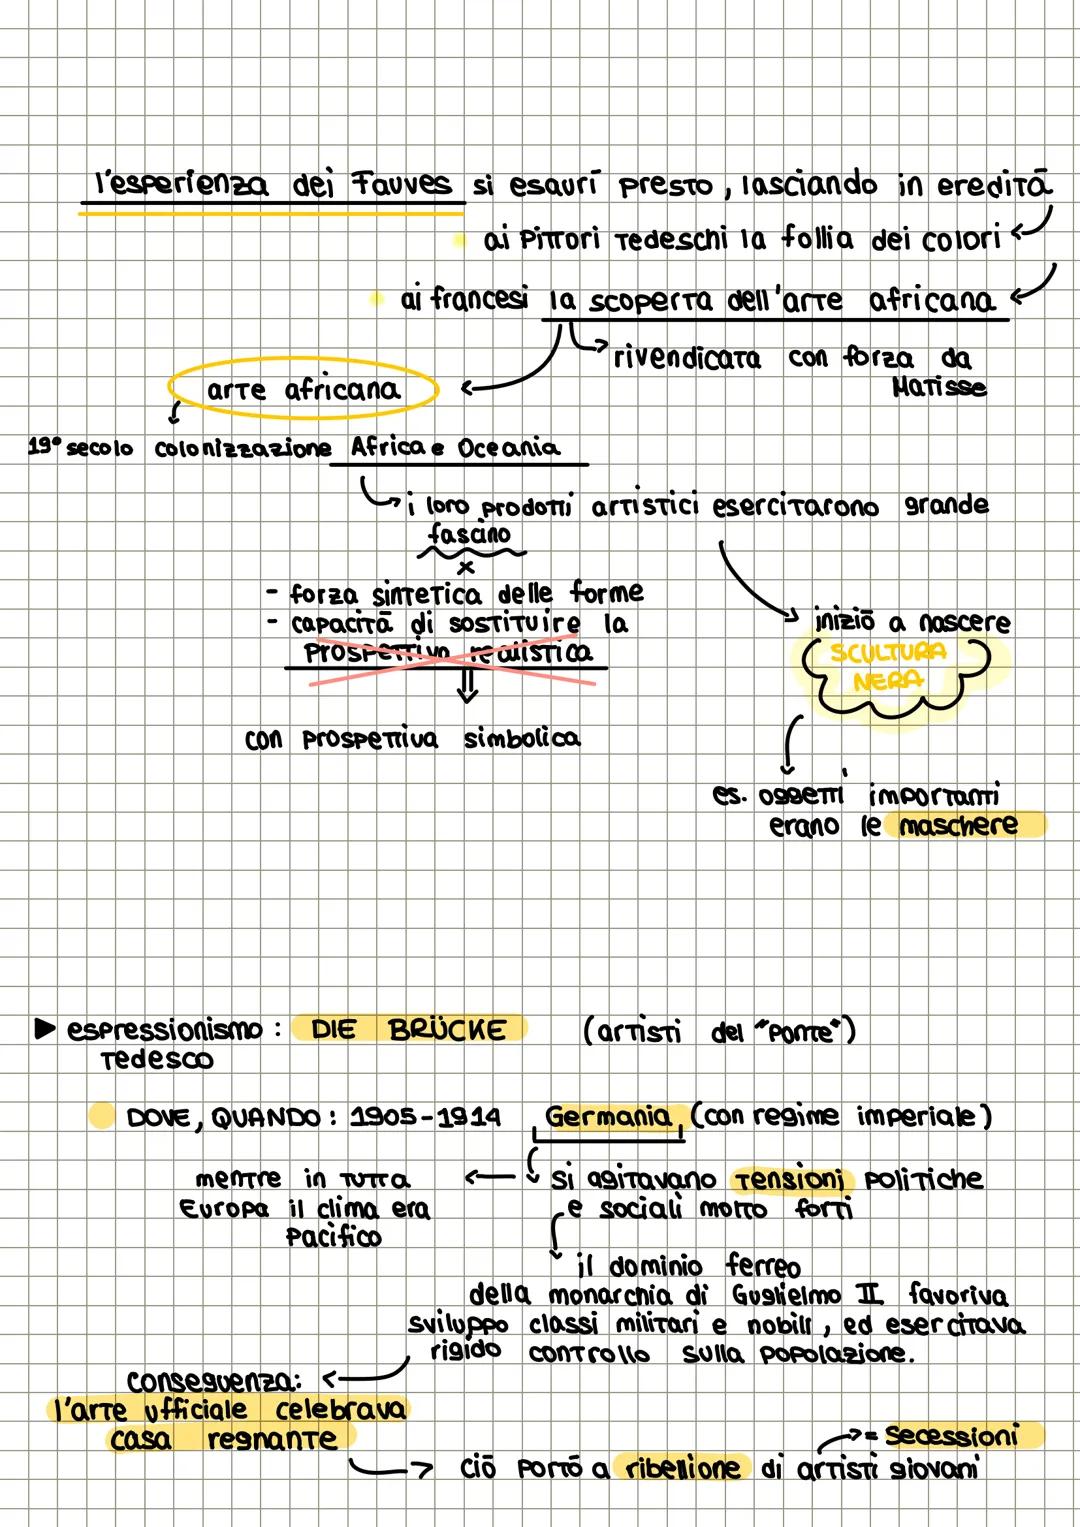 l'esperienza dei Fauves si esaurì presto, lasciando in eredità
ai Pittori Tedeschi la follia dei colori
ai francesi la scoperta dell'arte africana
rivendicata con forza da
Matisse
arte africana
19° secolo colonizzazione Africa e Oceania
i loro prodotti artistici esercitarono grande
fascino
x
- forza sintetica delle forme
- capacità di sostituire la
prospettiva realistica
con prospettiva simbolica
iniziò a nascere
SCULTURA
NERA
es. oggetti importanti
erano le maschere
▶ espressionismo : DIE BRÜCKE (artisti del "Ponte")
Tedesco
DOVE, QUANDO : 1905-1914 Germania (con regime imperiale)
mentre in tutta
Europa il clima era
Pacifico
si agitavano tensioni politiche
e sociali molto forti
il dominio ferreo
della monarchia di Guglielmo II favoriva
sviluppo classi militari e nobili, ed esercitava
rigido controllo sulla popolazione.
conseguenza:
l'arte ufficiale celebrava
casa regnante
= Secessioni
ciò portò a ribellione di artisti giovani